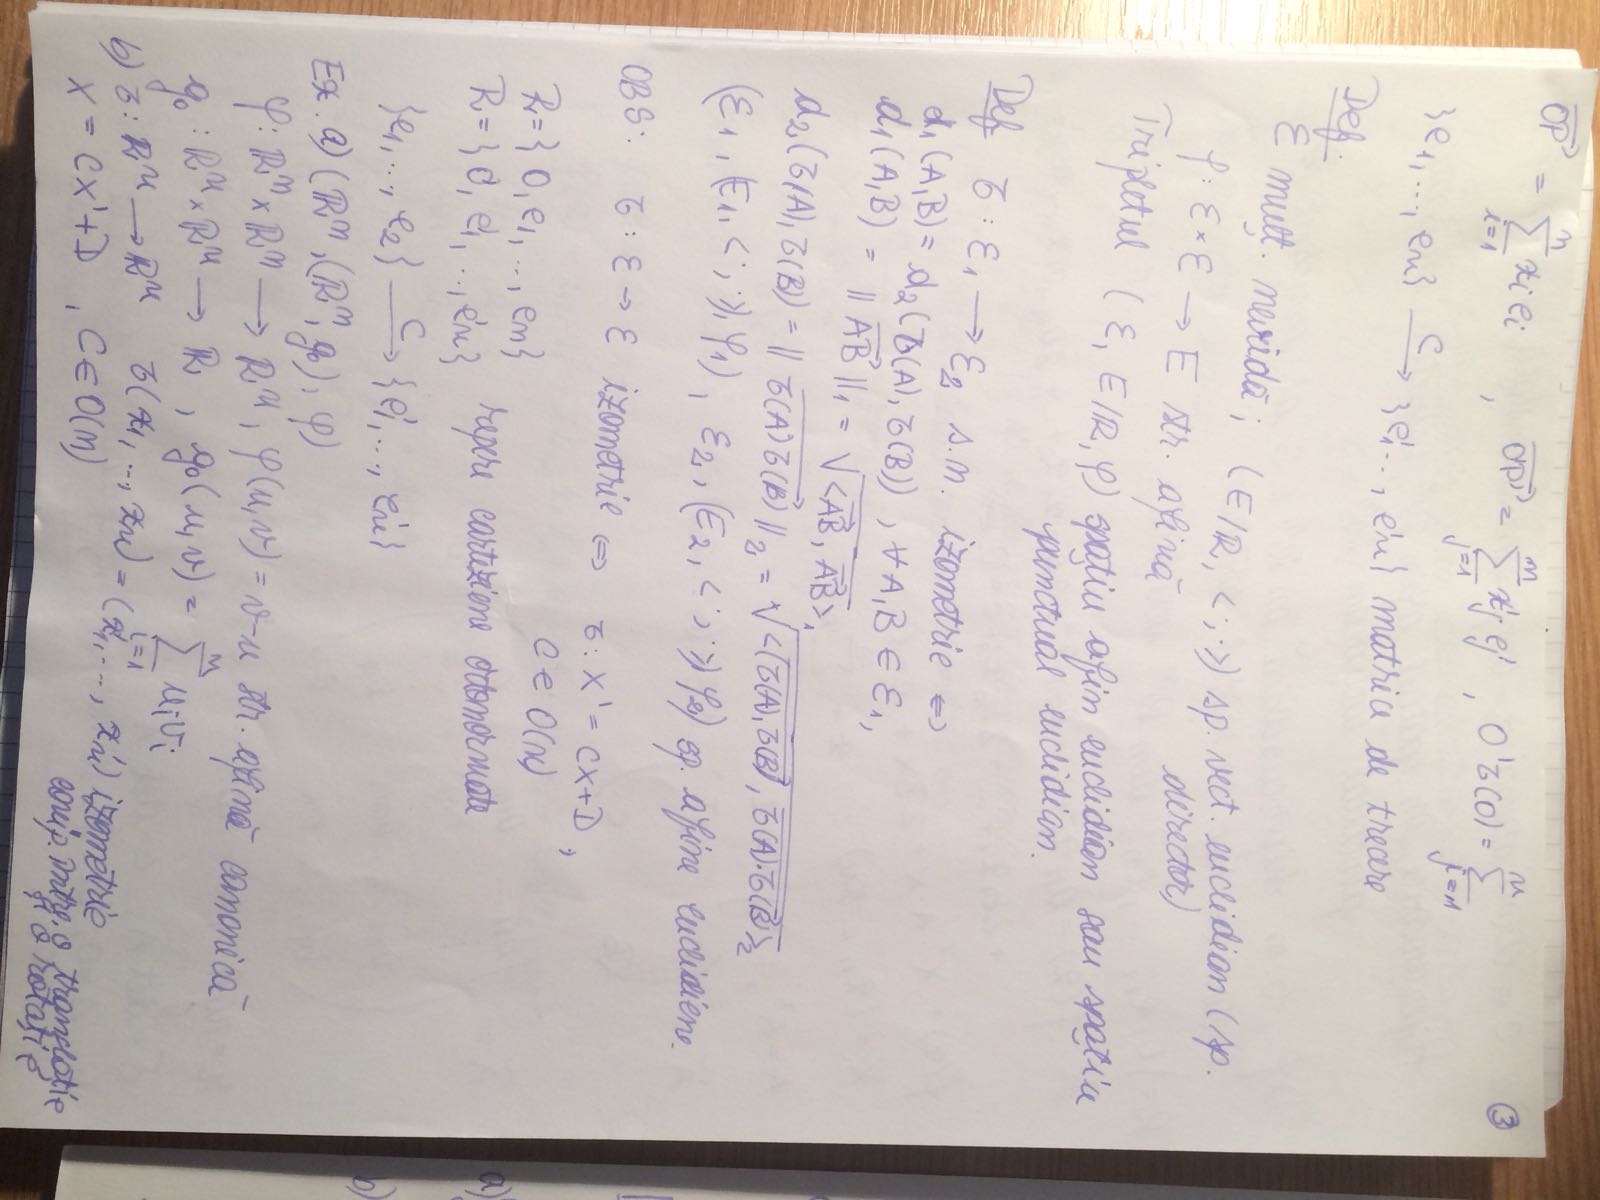 ③
OP⃗ = Σ_{i=1}^{n} x_i e_i , OP⃗' = Σ_{j=1}^{n} x'_j e'_j , O'τ(O) = Σ_{j=1}^{n}
{e1,..., en} —C→ {e'1..., e'n} matricea de trecere
Def.
ℰ mulț. nevidă; (E/ℝ, <·,·>) sp. vect. euclidian (sp. director)
φ: ℰ×ℰ → E str. afină
Tripletul (ℰ, E/ℝ, φ) spațiu afin euclidian sau spațiu
punctual euclidian.
Def τ: ℰ1 → ℰ2 s.n. izometrie ⇔
d1(A,B) = d2(τ(A), τ(B)), ∀ A,B ∈ ℰ1,
d1(A,B) = ||AB⃗||1 = √<AB⃗, AB⃗>1
d2(τ(A), τ(B)) = ||τ(A)τ(B)||2 = √<τ(A),τ(B), τ(A)·τ(B)>2
(ℰ1, (E1, <;·>) φ1), ℰ2, (E2, <;·>) φ2) sp. afine euclidiene.
OBS. τ: ℰ → ℰ izometrie ⇔ τ: X' = CX+D,
C ∈ O(n)
R = {O, e1,..., en}
R' = {O', e'1,..., e'n} repere carteziene ortonormate
{e1,..., e2} —C→ {e'1,..., e'n}
Ex. a) (ℝⁿ, (ℝⁿ, g0), φ)
φ: ℝⁿ×ℝⁿ → ℝⁿ, φ(u,v) = v-u str. afină canonică
g0: ℝⁿ×ℝⁿ → ℝ, g0(u,v) = Σ_{i=1}^{n} u_i v_i
b) τ: ℝⁿ → ℝⁿ τ(x1,..., xn) = (x'1,..., x'n) izometrie
X = CX'+D, C ∈ O(n) comp. intre o translație
și o rotație
a)
b)